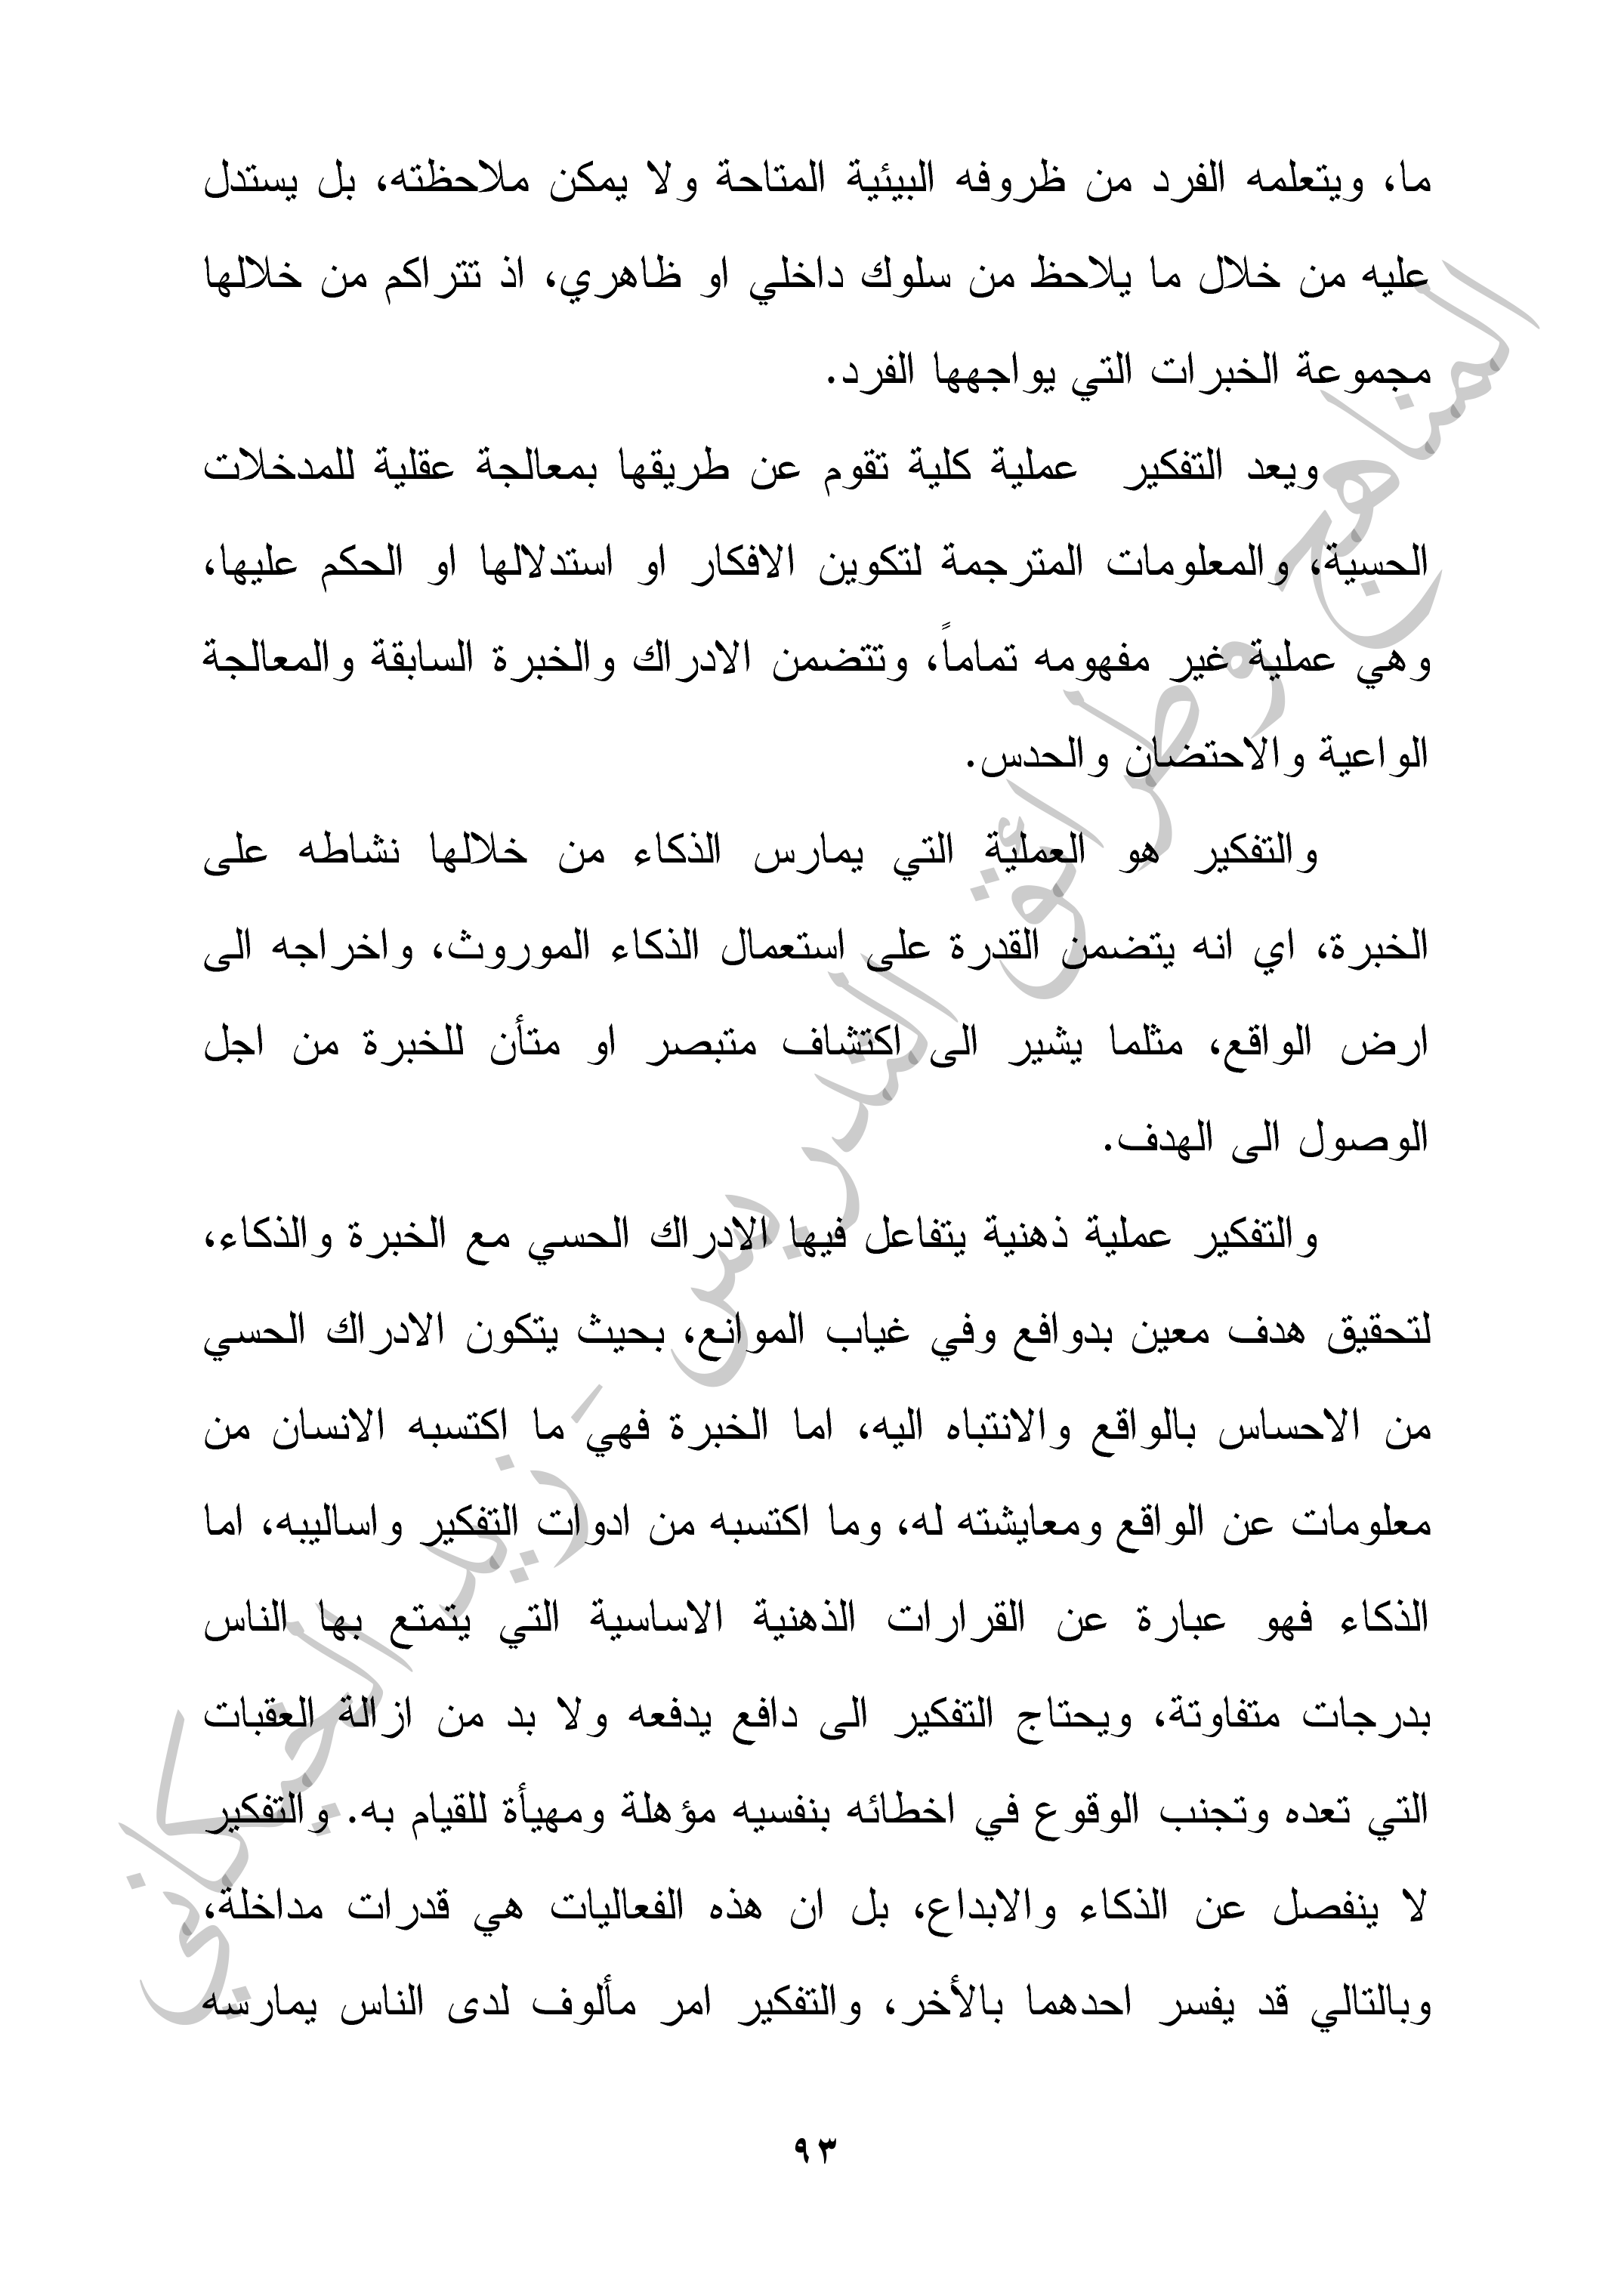 ما، ويتعلمه الفرد من ظروفه البيئية المتاحة ولا يمكن ملاحظته، بل يستدل
عليه من خلال ما يلاحظ من سلوك داخلي او ظاهري، اذ تتراكم من خلالها
مجموعة الخبرات التي يواجهها الفرد.
ويعد التفكير عملية كلية تقوم عن طريقها بمعالجة عقلية للمدخلات
الحسية، والمعلومات المترجمة لتكوين الافكار او استدلالها او الحكم عليها،
وهي عملية غير مفهومه تماماً، وتتضمن الادراك والخبرة السابقة والمعالجة
الواعية والاحتضان والحدس.
والتفكير هو العملية التي يمارس الذكاء من خلالها نشاطه على
الخبرة، اي انه يتضمن القدرة على استعمال الذكاء الموروث، واخراجه الى
ارض الواقع، مثلما يشير الى اكتشاف متبصر او متأن للخبرة من اجل
الوصول الى الهدف.
والتفكير عملية ذهنية يتفاعل فيها الادراك الحسي مع الخبرة والذكاء،
لتحقيق هدف معين بدوافع وفي غياب الموانع، بحيث يتكون الادراك الحسي
من الاحساس بالواقع والانتباه اليه، اما الخبرة فهي ما اكتسبه الانسان من
معلومات عن الواقع ومعايشته له، وما اكتسبه من ادوات التفكير واساليبه، اما
الذكاء فهو عبارة عن القرارات الذهنية الاساسية التي يتمتع بها الناس
بدرجات متفاوتة، ويحتاج التفكير الى دافع يدفعه ولا بد من ازالة العقبات
التي تعده وتجنب الوقوع في اخطائه بنفسيه مؤهلة ومهيأة للقيام به. والتفكير
لا ينفصل عن الذكاء والابداع، بل ان هذه الفعاليات هي قدرات مداخلة،
وبالتالي قد يفسر احدهما بالأخر، والتفكير امر مألوف لدى الناس يمارسه
٩٣
المناهج وطرائق التدريس - زيد الخيكاني